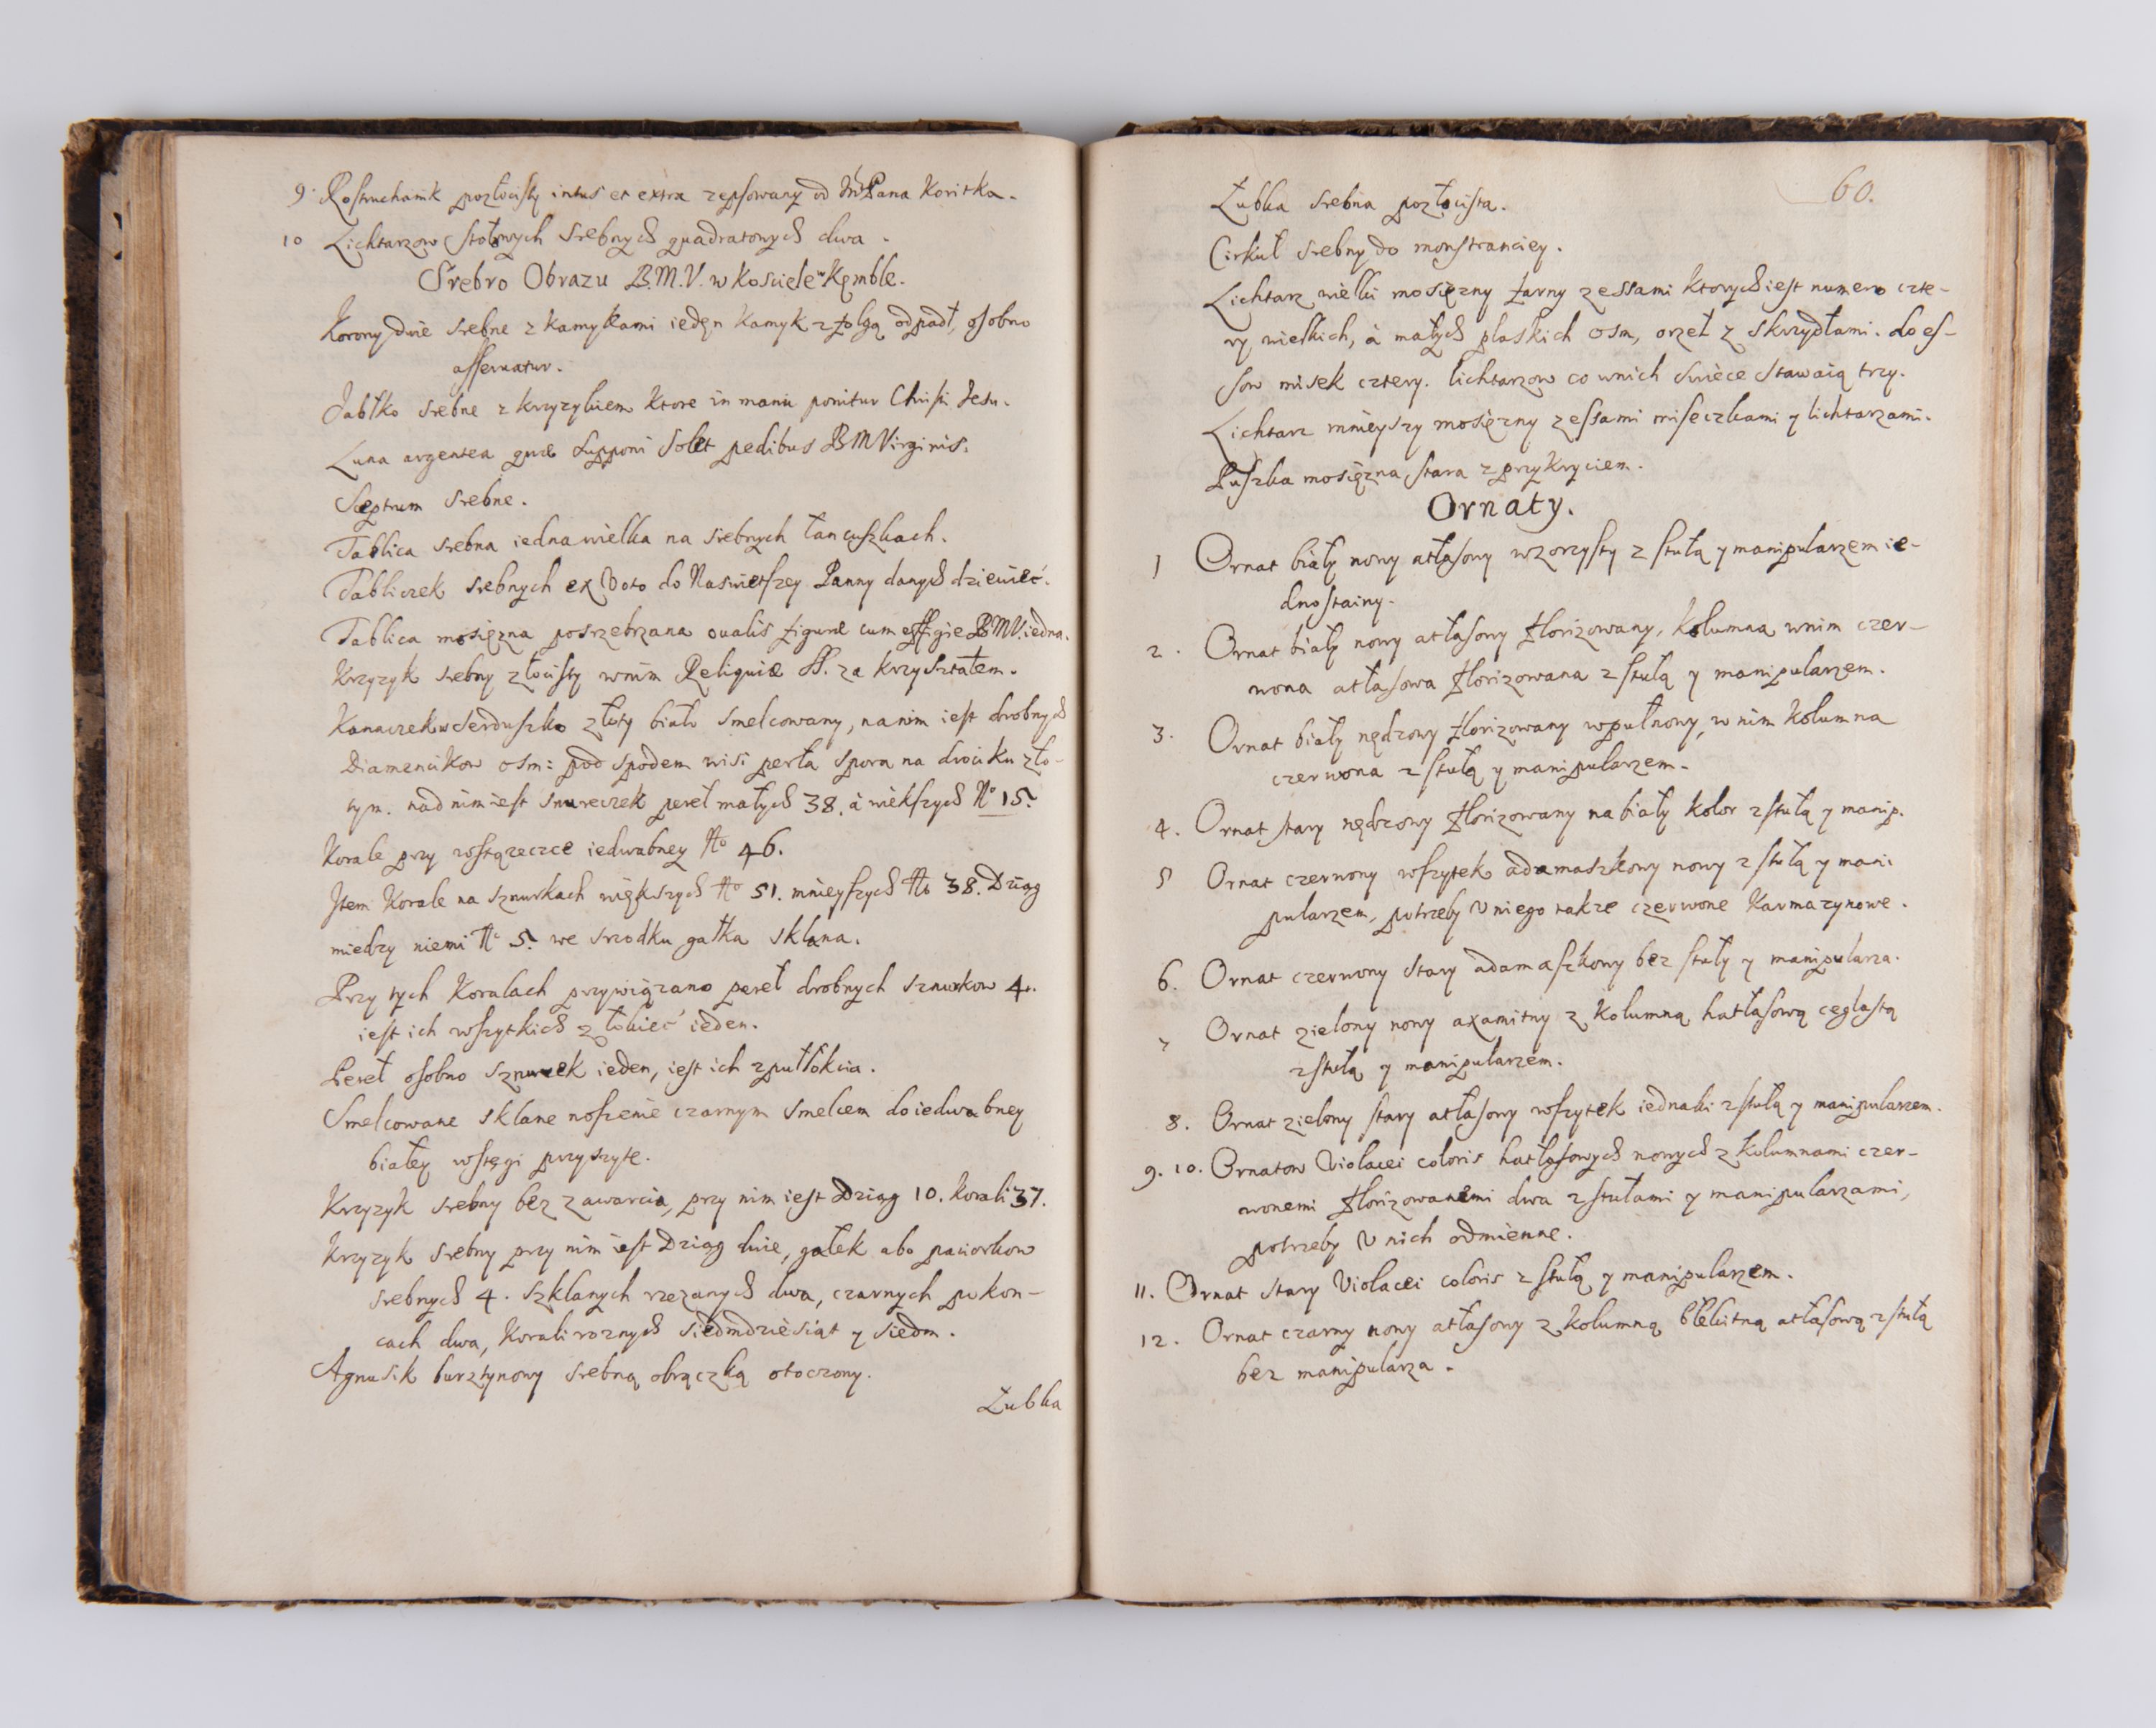 9. Rostruchanik pozłocisty intus et extra zepsowany od JMPana Koritka.
10 Lichtarzow stołowych srebnych quadratowych dwa.
Srebro Obrazu B.M.V. w Kosciele w Kęmble.
Korony dwie srebne z kamykami ieden kamyk z folgą odpadł, osobno
asseruatur.
Jabłko srebne z krzyzykiem ktore in manu ponitur Christi Jesu.
Luna argentea quæ supponi solet pedibus BMVirginis.
Sceptrum srebne.
Tablica srebna iedna wielka na srebnych łancuszkach.
Tabliczek srebnych ex Voto do Naswietszey Panny danych dziewięć.
Tablica mosięzna posrzebrzana oualis figuræ cum effigie BMV. iedna.
Krzyzyk srebny złocisty w nim Reliquiæ SS. za krzyształem.
Kanaczek w serduszko złoty biało smelcowany, na nim iest drobnych
Diamencikow osm: pod spodem wisi perła spora na drociku zło-
tym. nad nim iest snureczek pereł małych 38. à wiekszych No 15.
Korale przy wstązeczce iedwabney No 46.
Item Korale na sznurkach większych No 51. mnieyszych No 38. Dziąg
miedzy niemi No 5. we srzodku gałka sklana.
Przy tych Koralach przywiązano pereł drobnych sznurkow 4.
iest ich wszytkich z łokieć ieden.
Pereł osobno sznurek ieden, iest ich z pułłokcia.
Smelcowane sklane noszenie czarnym smelcem do iedwabney
białey wstęgi przyszyte.
Krzyzyk srebny bez zawarcia, przy nim iest Dziąg 10. korali 37.
Krzyzyk srebny przy nim iest Dziąg dwie, gałek abo paciorkow
srebnych 4. szklanych rzezanych dwa, czarnych po kon-
cach dwa, Korali roznych siedmdziesiąt y siedm.
Agnusik bursztynowy srebną obrączką otoczony.
Łubka
60.
Łubka srebna pozłocista.
Cirkuł srebny do monstranciey.
Lichtarz wielki mosięzny farny z essami ktorych iest numero czte-
ry wielkich, à małych płaskich osm, orzeł z skrzydłami. do es-
sow misek cztery. lichtarzow co w nich swiece stawaią trzy.
Lichtarz mnieyszy mosięzny z essami miseczkami y lichtarzami.
Puszka mosięzna stara z przykryciem.
Ornaty.
1 Ornat biały nowy atłasowy wzorzysty z stułą y manipularzem ie-
dnostainy.
2. Ornat biały nowy atłasowy florizowany, kolumna w nim czer-
wona atłasowa florizowana z stułą y manipularzem.
3. Ornat biały nędzowy florizowany wpułnowy, w nim kolumna
czerwona z stułą y manipularzem.
4. Ornat stary nędzowy florizowany na biały kolor z stułą y manip.
5 Ornat czerwony wszytek adamaszkowy nowy z stułą y mani
pularzem, potrzeby v niego takze czerwone karmazynowe.
6. Ornat czerwony stary adamaszkowy bez stuły y manipularza.
7 Ornat zielony nowy axamitny z kolumną hatłasową ceglastą
z stułą y manipularzem.
8. Ornat zielony stary atłasowy wszytek iednaki z stułą y manipularzem.
9. 10. Ornatow Violacei coloris hatłasowych nowych z kolumnami czer-
wonemi florizowanemi dwa z stułami y manipularzami,
potrzeby v nich odmienne.
11. Ornat stary Violacei coloris z stułą y manipularzem.
12. Ornat czarny nowy atłasowy z kolumną błekitną atłasową z stułą
bez manipularza.